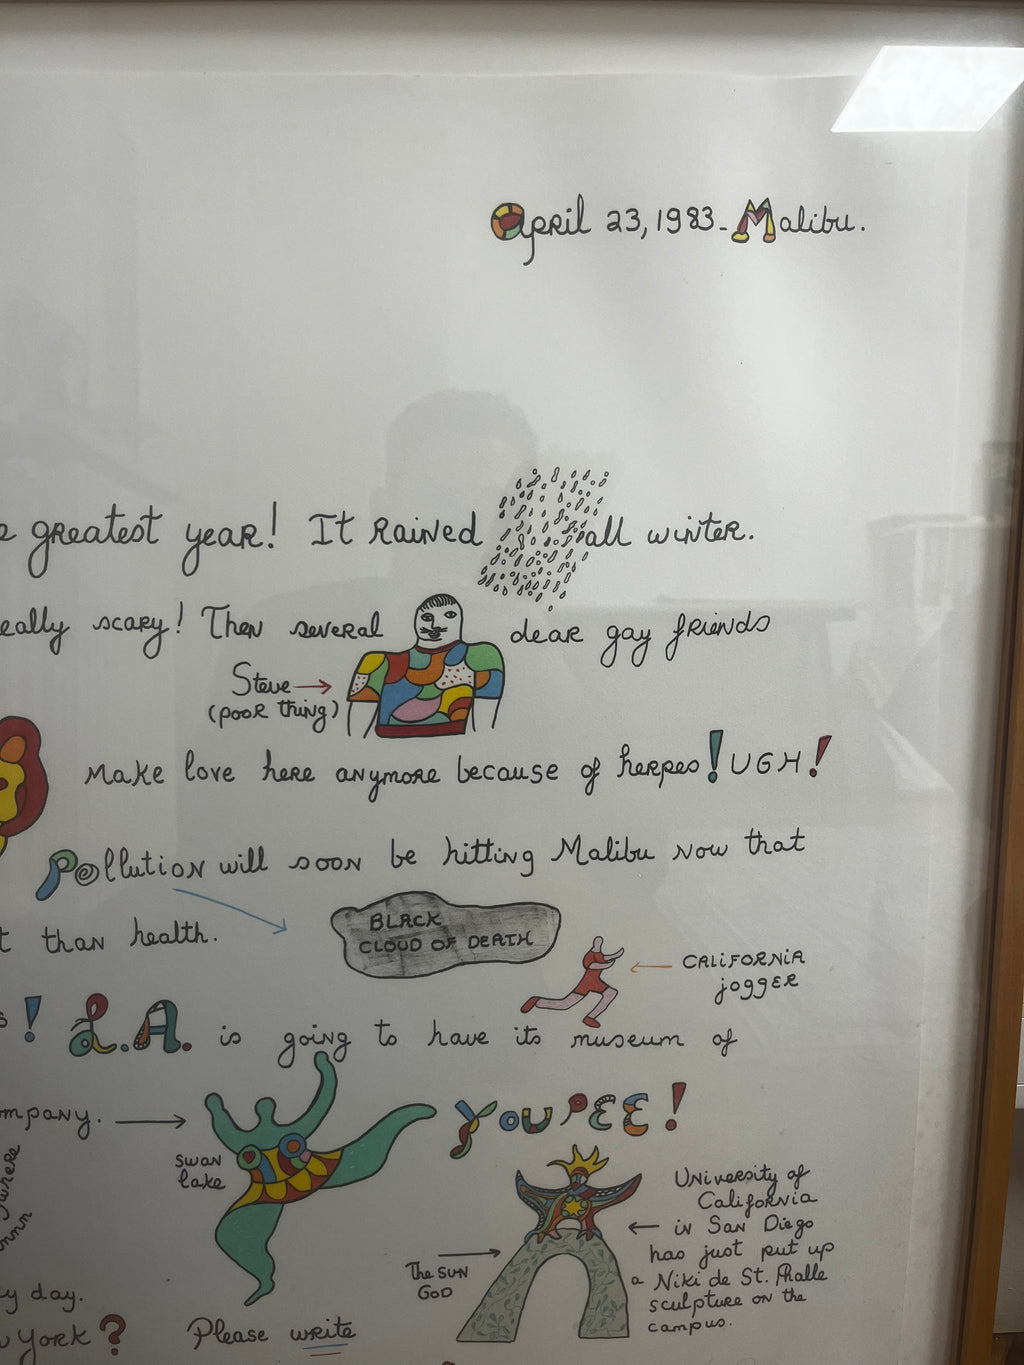 April 23, 1983 - Malibu.
greatest year! It rained all winter.
scary! Then several dear gay friends
Steve
(poor thing)
make love here anymore because of herpes! UGH!
Pollution will soon be hitting Malibu now that
than health.
BLACK
CLOUD OF DEATH
CALIFORNIA
jogger
! L.A. is going to have its museum of
YOUPEE!
swan
lake
University of
California
in San Diego
has just put up
a Niki de St. Phalle
sculpture on the
campus.
The SUN
GOD
day.
York? Please write